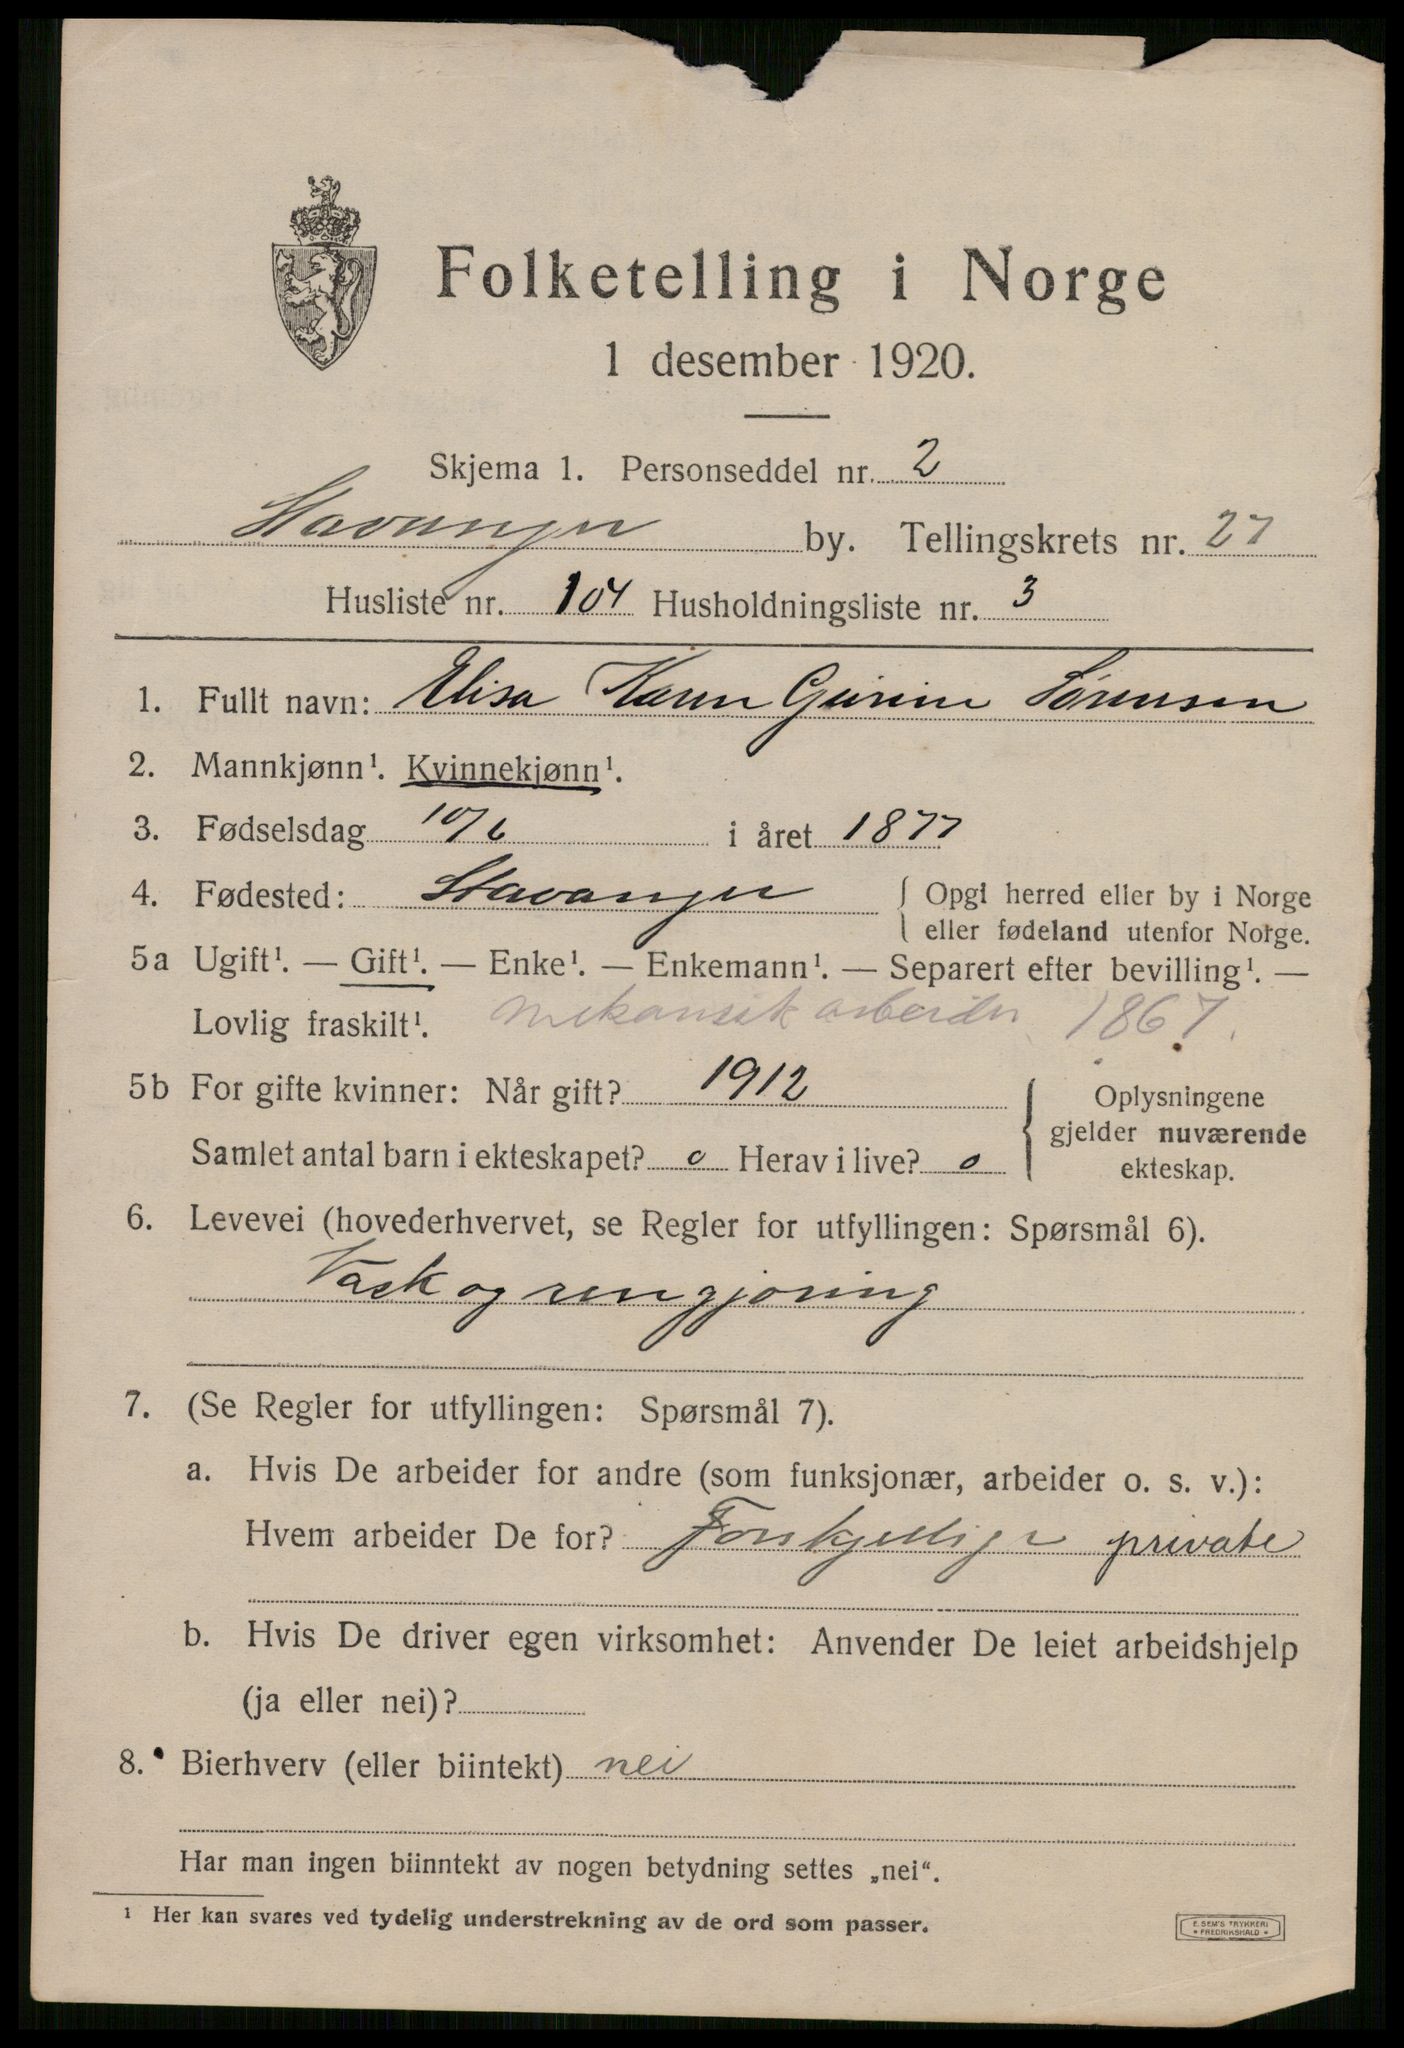 Folketelling i Norge
1 desember 1920.
Skjema 1. Personseddel nr. 2
Stavanger by. Tellingskrets nr. 27
Husliste nr. 104 Husholdningsliste nr. 3
1. Fullt navn: Elisa Karen Gurine Sørensen
2. Mannkjønn¹. Kvinnekjønn¹.
3. Fødselsdag 10/6 i året 1877
4. Fødested: Stavanger { Opgi herred eller by i Norge
eller fødeland utenfor Norge.
5a Ugift¹. — Gift¹. — Enke¹. — Enkemann¹. — Separert efter bevilling¹. —
Lovlig fraskilt¹. mekanisk arbeider 1867.
5b For gifte kvinner: Når gift? 1912 { Oplysningene
gjelder nuværende
Samlet antal barn i ekteskapet? 0 Herav i live? 0 ekteskap.
6. Levevei (hovederhvervet, se Regler for utfyllingen: Spørsmål 6).
Vask og rengjøring
7. (Se Regler for utfyllingen: Spørsmål 7).
a. Hvis De arbeider for andre (som funksjonær, arbeider o. s. v.):
Hvem arbeider De for? Forskjellige private
b. Hvis De driver egen virksomhet: Anvender De leiet arbeidshjelp
(ja eller nei)?
8. Bierhverv (eller biintekt) nei
Har man ingen biinntekt av nogen betydning settes „nei“.
¹ Her kan svares ved tydelig understrekning av de ord som passer.
E. SEM'S TRYKKERI
* FREDRIKSHALD *